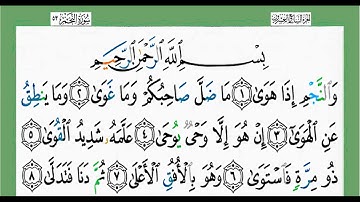 سُورَةُ النَّجْمِ ٥٣
بِسْمِ ٱللَّهِ ٱلرَّحْمَٰنِ ٱلرَّحِيمِ
وَالنَّجْمِ إِذَا هَوَىٰ ١ مَا ضَلَّ صَاحِبُكُمْ وَمَا غَوَىٰ ٢ وَمَا يَنطِقُ
عَنِ الْهَوَىٰ ٣ إِنْ هُوَ إِلَّا وَحْيٌ يُوحَىٰ ٤ عَلَّمَهُ شَدِيدُ الْقُوَىٰ ٥
ذُو مِرَّةٍ فَاسْتَوَىٰ ٦ وَهُوَ بِالْأُفُقِ الْأَعْلَىٰ ٧ ثُمَّ دَنَا فَتَدَلَّىٰ ٨